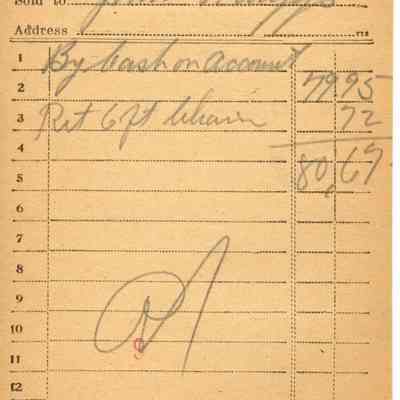 Sold to
Address
1 By Cash on Account
2 79 95
3 Ret 6 ft Chain 72
4
5 80,67
6
7
8
9
10
11
12